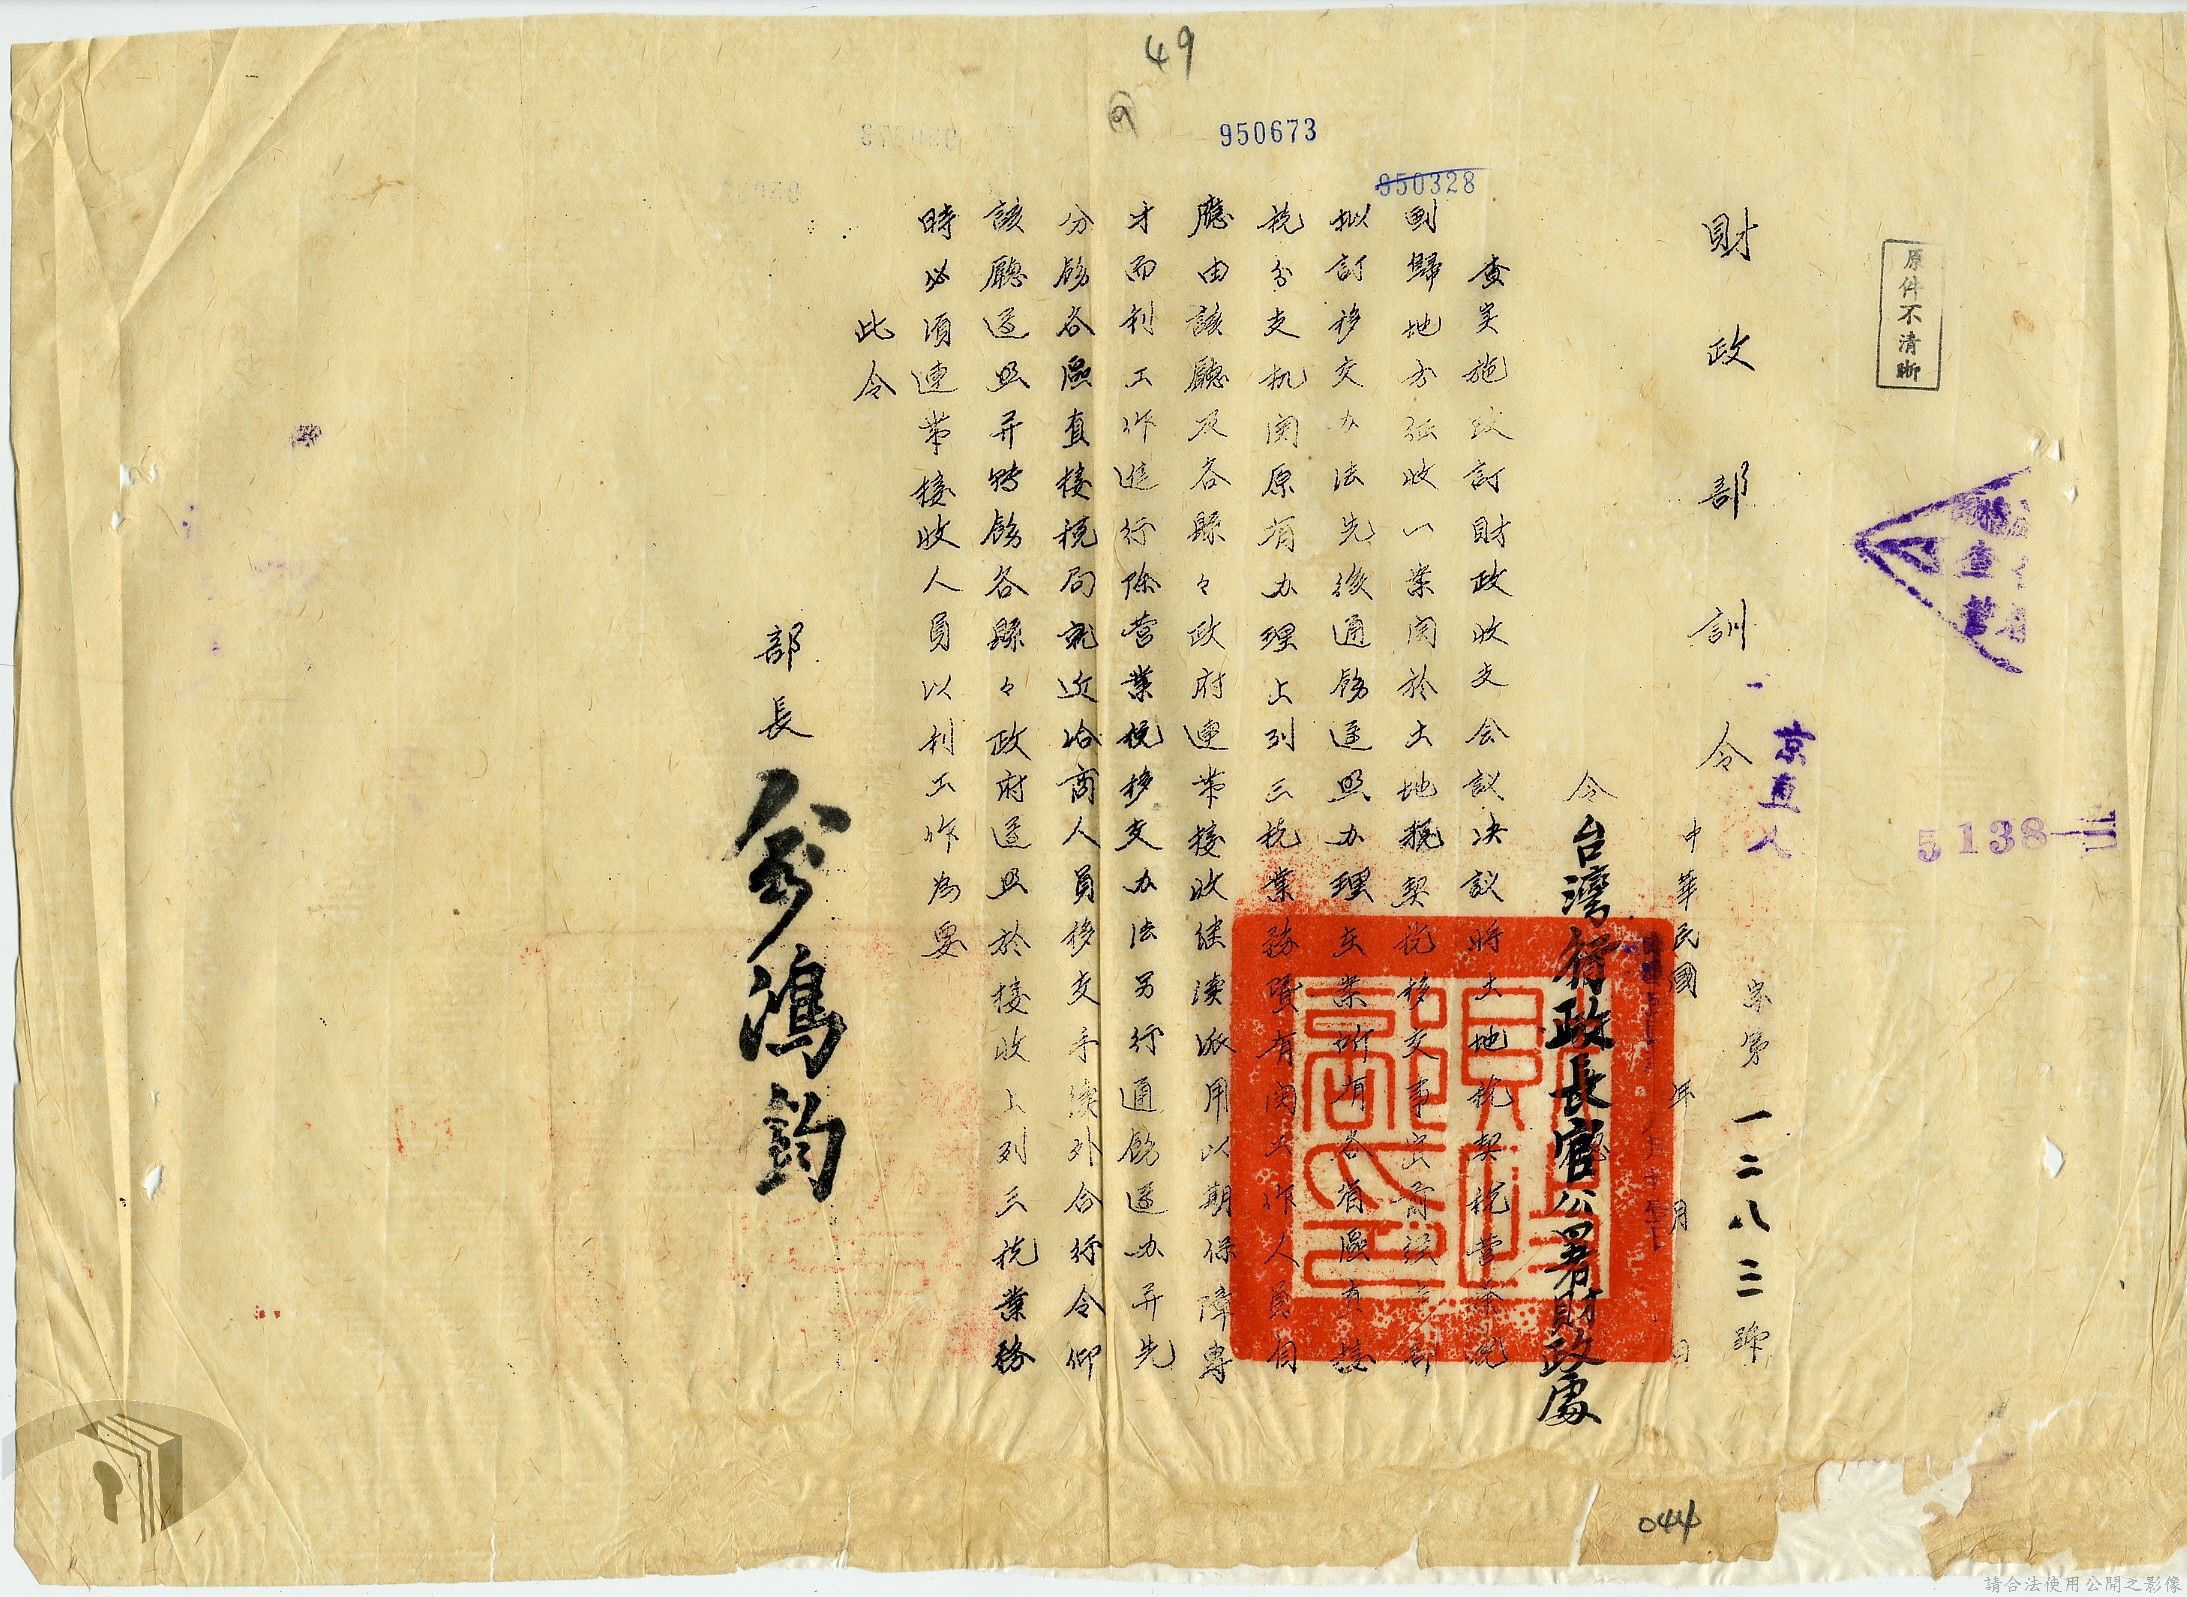 49
950673
950328
原件不清晰
財政部訓令
京直
5138
字第一二八三號
中華民國 年 月 日
令台灣行政長官公署財政處
查实施改訂財政收支会议决议將土地税契税营業税
劃歸地方征收一案関於土地税契税移交事宜
拟訂移交办法先後通飭遵照办理在案所有各省區直接
税分支机関原有办理上列三税業務暨有関工作人員自
應由該廳及各縣々政府連带接收继续派用以期保障專
才而利工作進行除营業税移交办法另行通飭遵办并先
分飭各區直接税局就近洽商人員移交手续外合行令仰
該廳遵照并轉飭各縣々政府遵照於接收上列三税業務
時必須連带接收人員以利工作為要
此令
部長俞鴻鈞
044
請合法使用公開之影像